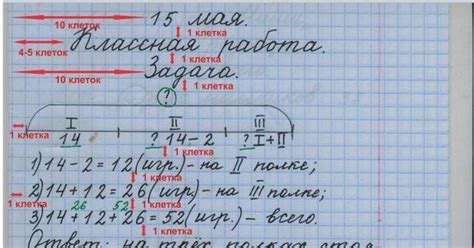 15 мая.
10 клеток
1 клетка
Классная работа.
4-5 клеток
1 клетка
Задача.
10 клеток
1 клетка
?
I II III
1 клетка
14 ? 14-2 ? I+II
1 клетка
1) 14-2=12 (игр.) - на II полке;
1 клетка
2) 14+12=26 (игр.) - на III полке;
1 клетка
26 52
1 клетка
3) 14+12+26=52 (игр.) - всего.
1 клетка
Ответ: на трёх полках